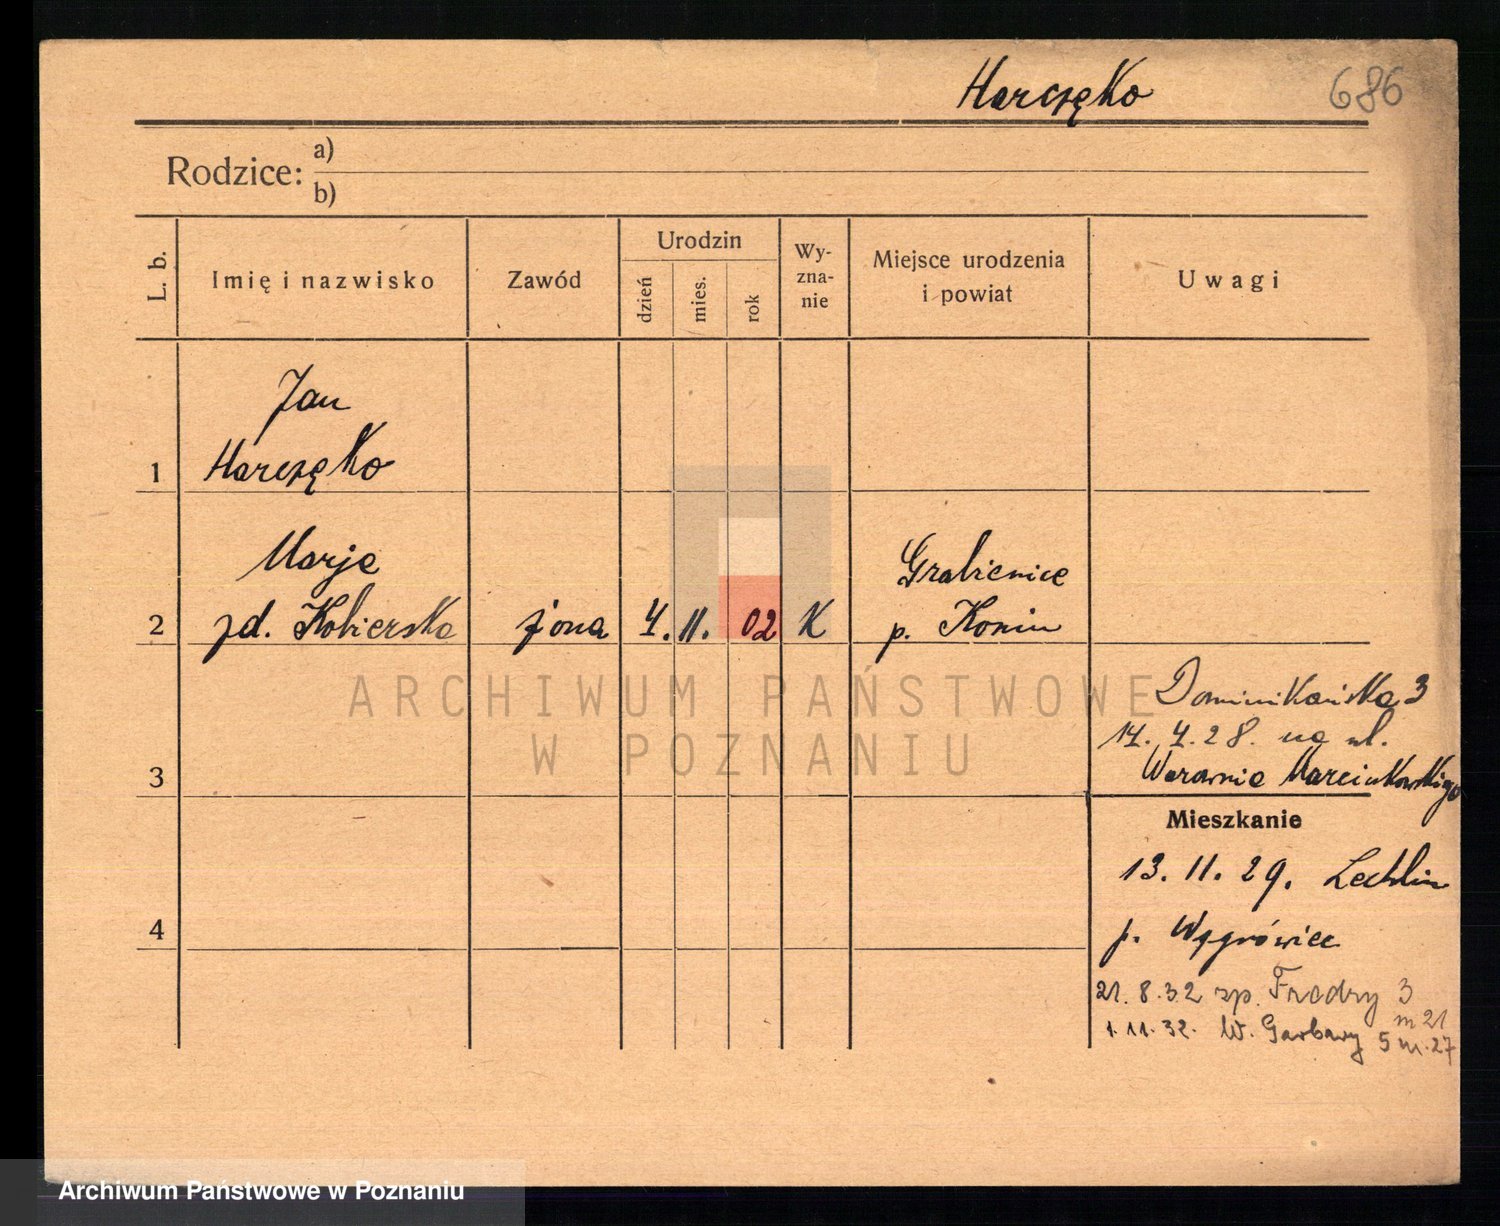 Harczęko 686
Rodzice: a)
b)
L. b.
Imię i nazwisko
Zawód
Urodzin
dzień
mies.
rok
Wy-
zna-
nie
Miejsce urodzenia
i powiat
Uwagi
Jan
1 Harczęko
Marja
2 zd. Kobierska żona 4. 11. 02 K
Grabienice
p. Konin
ARCHIWUM PAŃSTWOWE
W POZNANIU
Dominikańska 3
14. 4. 28. na ul.
Marcinkowskiego
3
Mieszkanie
13. 11. 29. Lechlin
4
p. Wągrówiec
21. 8. 32 zp. Fredry 3
m 21
1. 11. 32. W. Garbary 5 m. 27
Archiwum Państwowe w Poznaniu